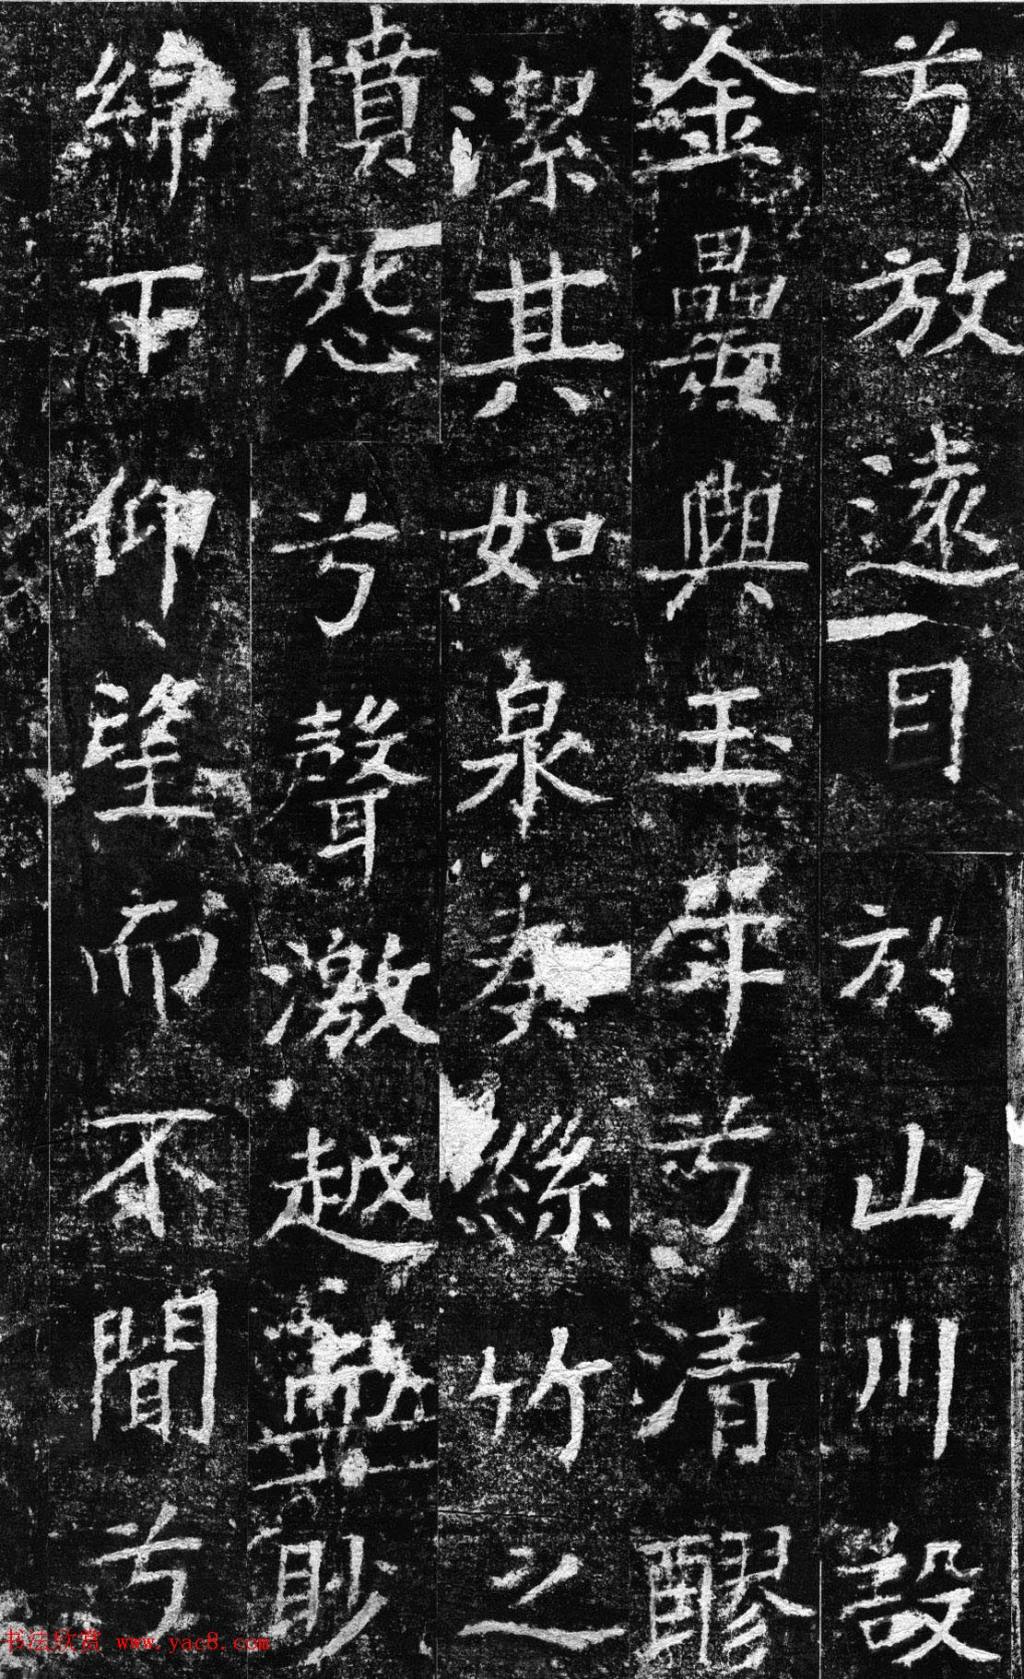 兮放遠目於山川設
金罍與玉斝兮清醪
潔其如泉奏絲竹之
憤怨兮聲激越眇
綿下仰望而不聞兮
书法欣赏 www.yac8.com